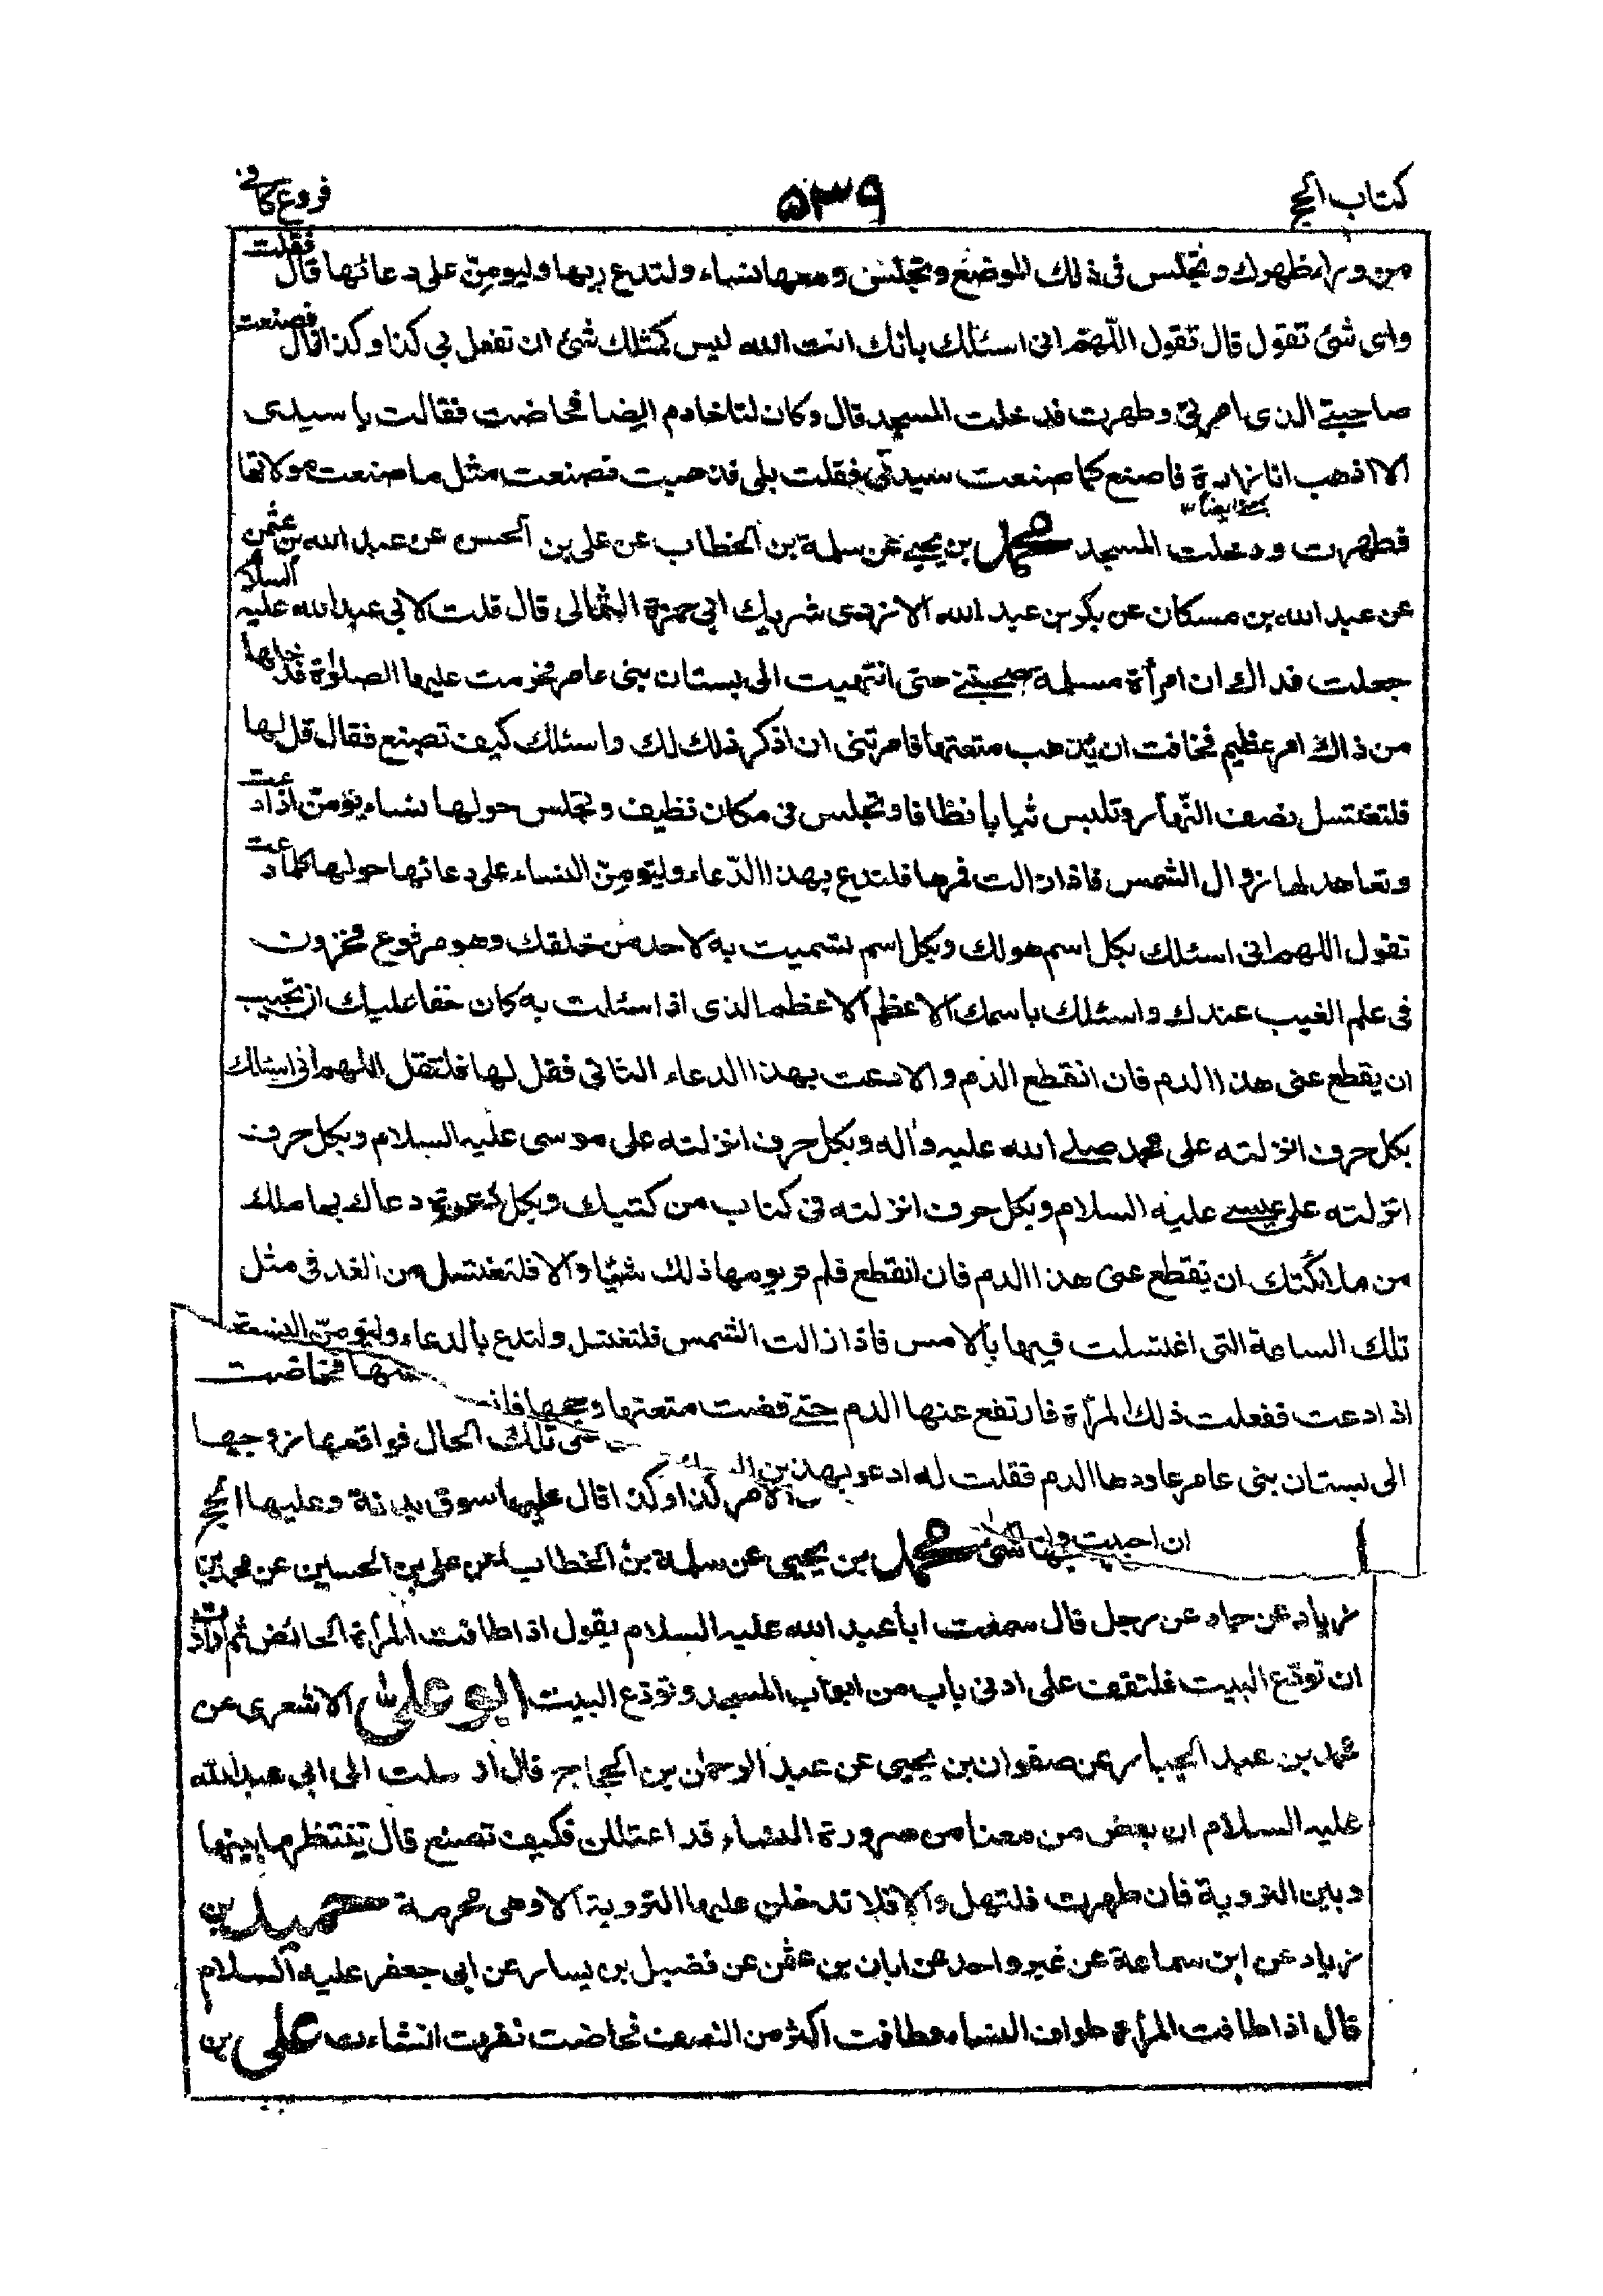 كتاب الحج ۵۳۹ فروع كافي
من وراء ظهرك وتجلس في ذلك الموضع وتجلس ومعها نساء ولتدع ربها وليومّن على دعائها قال فقلت
واى شئ تقول قال تقول اللّهم انى اسئلك بانك انت الله ليس كمثلك شئ ان تفعل بى كذا وكذا قال فصنعت
صاحبتى الذى امرنى وطهرت فدخلت المسجد قال وكان لنا خادم ايضا فحاضت فقالت يا سيدى
الا اذهب انا زادة فاصنع كما صنعت سيدتى فقلت بلى فذهبت فصنعت مثل ما صنعت مولاتها
فطهرت ودخلت المسجد محمد بن يحيى عن سلمة بن الخطاب عن على بن الحسن عن عبد الله بن عثمن
عن عبد الله بن مسكان عن بكر بن عبد الله الازدى شريك ابى حمزة الثمالى قال قلت لابى عبد الله عليه السلام
جعلت فداك ان امرأة مسلمة صحبتنى حتى انتهيت الى بستان بنى عامر فحرمت عليها الصلوة فدخلها
من ذلك امر عظيم فخافت ان يذهب متعتها فامرتنى ان اذكر ذلك لك واسئلك كيف تصنع فقال قل لها
فلتغتسل نصف النهار وتلبس ثيابا نظافا وتجلس فى مكان نظيف وتجلس حولها نساء يؤمنّ اذا دعت
وتعاهد لها زوال الشمس فاذا زالت فمرها فلتدع بهذا الدّعاء وليؤمنّ النساء على دعائها حولها كلما دعت
تقول اللهم انى اسئلك بكل اسم هو لك وبكل اسم تسميت به لاحد من خلقك وهو مرفوع مخزون
فى علم الغيب عندك واسئلك باسمك الاعظم الاعظم الذى اذا سئلت به كان حقا عليك ان تجيب
ان يقطع عنى هذا الدم فان انقطع الدم والا دعت بهذا الدعاء الثانى فقل لها فلتقل اللهم انى اسئلك
بكل حرف انزلته على محمد صلى الله عليه واله وبكل حرف انزلته على موسى عليه السلام وبكل حرف
انزلته على عيسى عليه السلام وبكل حرف انزلته فى كتاب من كتبك وبكل دعوة دعاك بها ملك
من ملائكتك ان تقطع عنى هذا الدم فان انقطع فلم تر يومها ذلك شيئا والا فلتغتسل من الغد فى مثل
تلك الساعة التى اغتسلت فيها بالامس فاذا زالت الشمس فلتغتسل ولتدع بالدعاء وليؤمنّ النسوة
اذا دعت ففعلت ذلك المرأة فارتفع عنها الدم حتى قضت متعتها وحجها
الى بستان بنى عامر عاودها الدم فقلت له ادعو بهذين
ان احببت
فحاضت
على تلك الحال فواقعها زوجها
الامر كذا وكذا قال عليها سوق بدنة وعليها الحج
شئ محمد بن يحيى عن سلمة بن الخطاب عن على بن الحسين عن محمد بن
زياد عن حماد عن رجل قال سمعت ابا عبد الله عليه السلام يقول اذا طافت المرأة الحائض ثم ارادت
ان تودّع البيت فلتقف على ادنى باب من ابواب المسجد وتودّع البيت ابو على الاشعرى عن
محمد بن عبد الجبار عن صفوان بن يحيى عن عبد الرحمن بن الحجاج قال ارسلت الى ابى عبد الله
عليه السلام ان بعض من معنا من صرورة النساء قد اعتللن فكيف تصنع قال تنتظر ما بينها
وبين التروية فان طهرت فلتهل والا فلا تدخلن عليها التروية الا وهى محرمة حميد بن
زياد عن ابن سماعة عن غير واحد عن ابان بن عثمن عن فضيل بن يسار عن ابى جعفر عليه السلام
قال اذا طافت المرأة طواف النساء فطافت اكثر من النصف فحاضت نفرت انشاءالله على بن